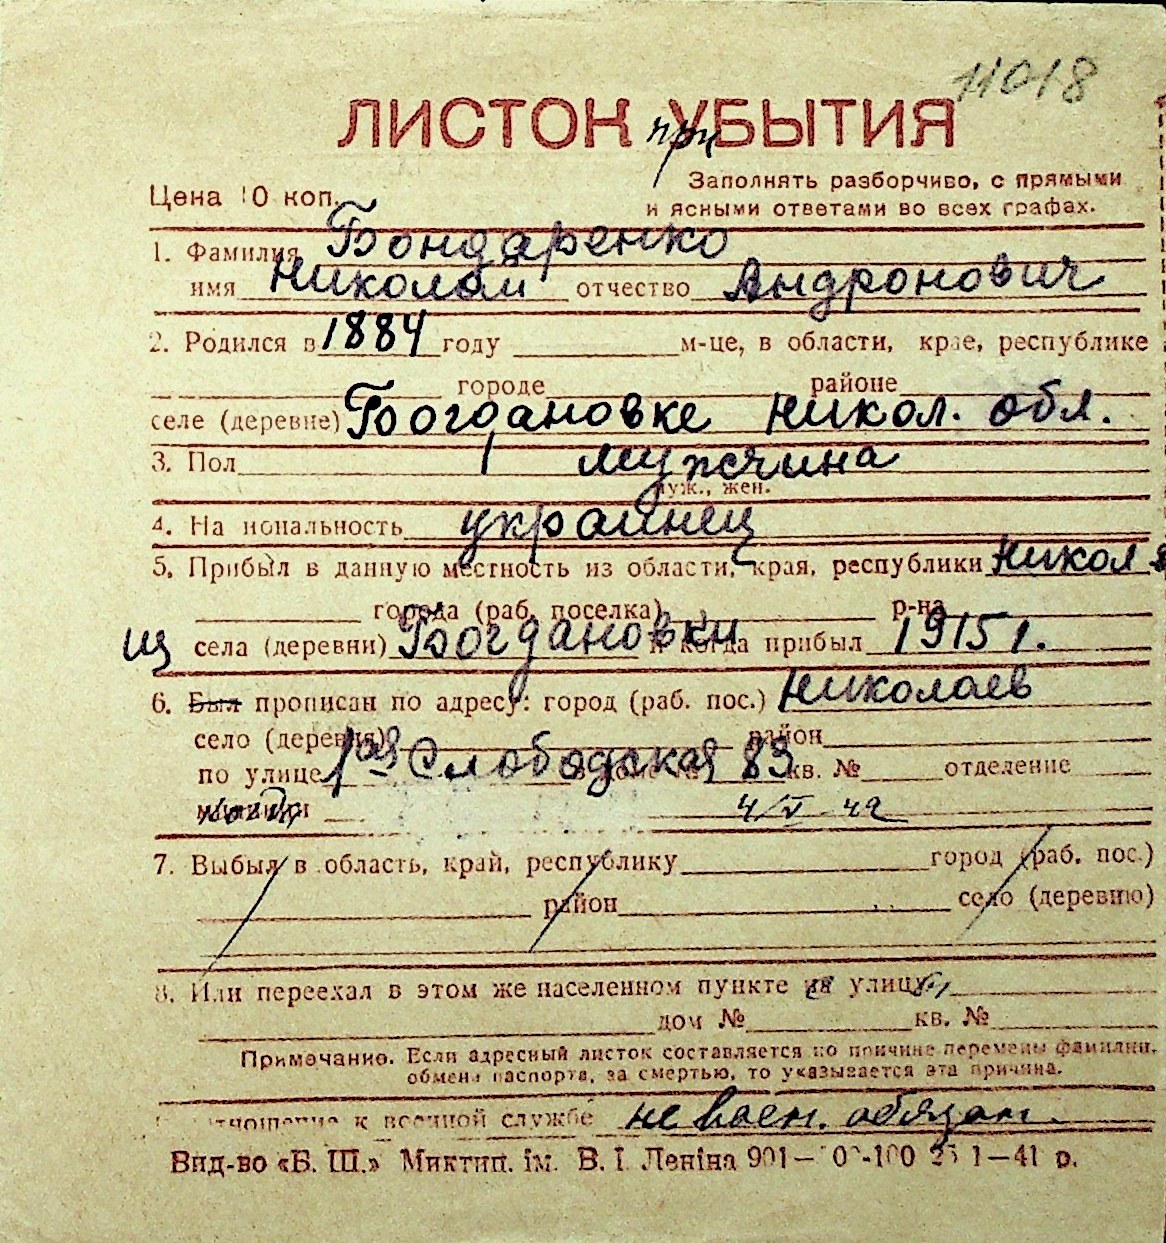 11018
ЛИСТОК при УБЫТИЯ
Заполнять разборчиво, с прямыми
Цена 10 коп.
и ясными ответами во всех графах.
1. Фамилия Бондаренко
имя Николай отчество Андронович
2. Родился в 1884 году м-це, в области, крае, республике
городе районе
селе (деревне) Богдановке Никол. обл.
3. Пол мужчина
муж., жен.
4. Национальность украинец
5. Прибыл в данную местность из области, края, республики Никол
города (раб. поселка) р-на
из села (деревни) Богдановки и когда прибыл 1915 г.
6. Был прописан по адресу: город (раб. пос.) Николаев
село (деревня) район
по улице 1ая Слободская 83 кв. № отделение
милиции 4/V 42
7. Выбыл в область, край, республику город (раб. пос.)
район село (деревню)
8. Или переехал в этом же населенном пункте на улицу
дом № кв. №
Примечание. Если адресный листок составляется по причине перемены фамилии,
обмена паспорта, за смертью, то указывается эта причина.
Отношение к военной службе не воен. обязан.
Вид-во «Б. Ш.» Миктип. ім. В. І. Леніна 901— 1—41 р.